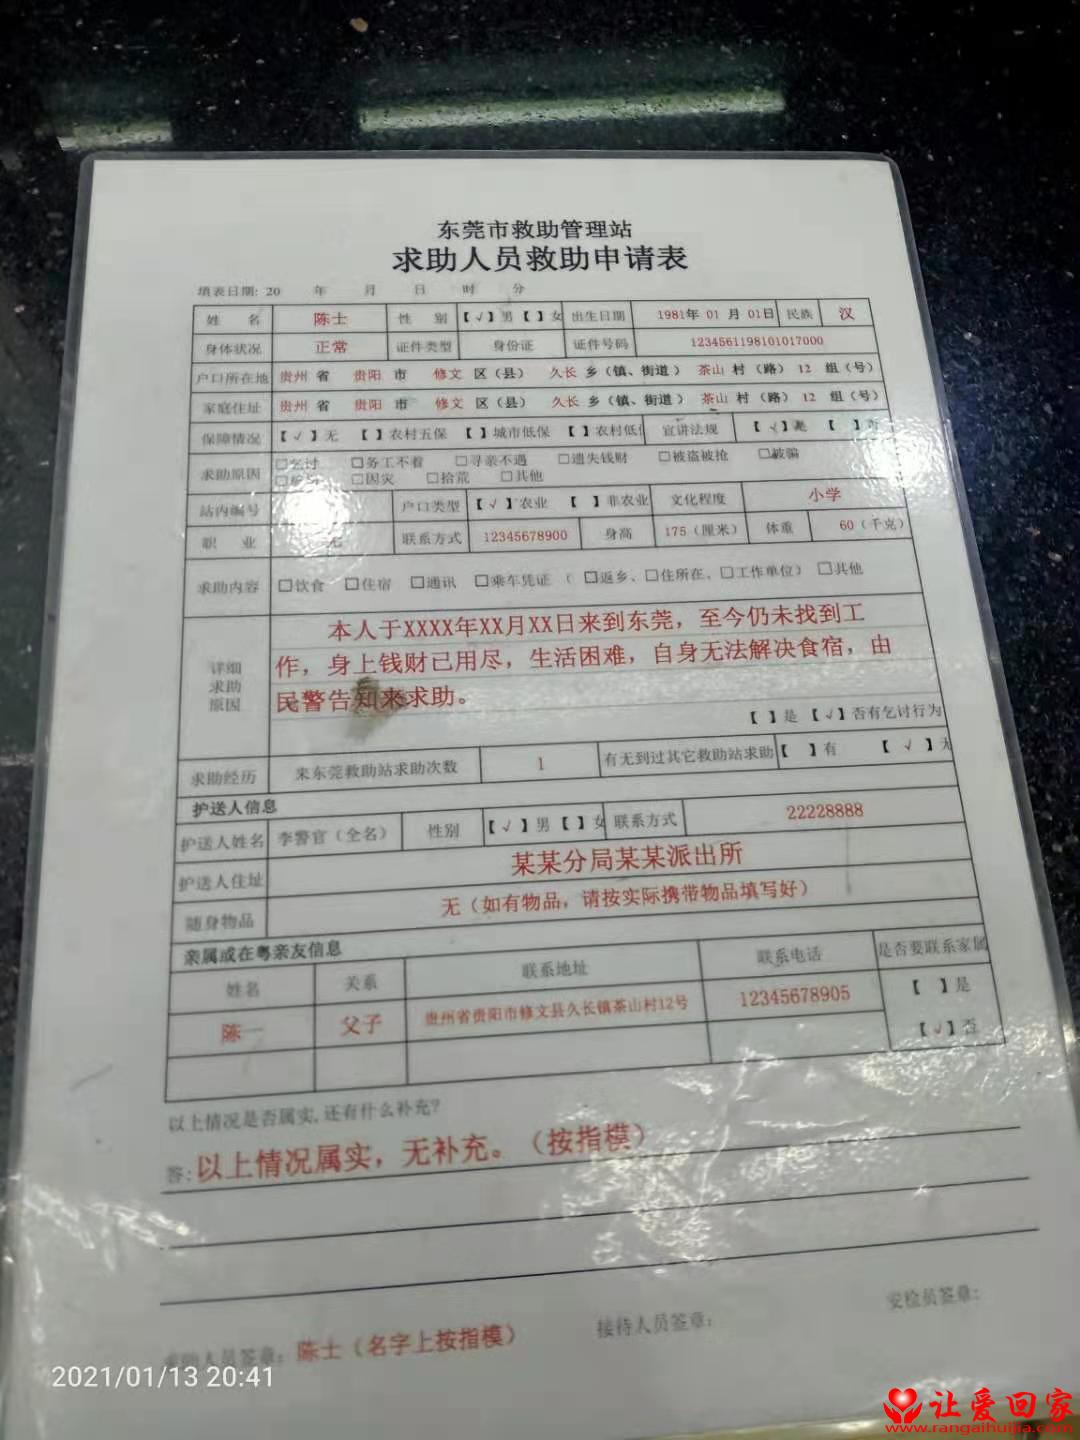 东莞市救助管理站
求助人员救助申请表
填表日期: 20 年 月 日 时 分
姓 名 陈士 性 别 【√】男【 】女 出生日期 1981年 01 月 01日 民族 汉
身体状况 正常 证件类型 身份证 证件号码 1234561198101017000
户口所在地 贵州 省 贵阳 市 修文 区（县） 久长 乡（镇、街道） 茶山 村（路） 12 组（号）
家庭住址 贵州 省 贵阳 市 修文 区（县） 久长 乡（镇、街道） 茶山 村（路） 12 组（号）
保障情况 【√】无 【 】农村五保 【 】城市低保 【 】农村低 宣讲法规 【√】是 【 】否
求助原因 □乞讨 □务工不着 □寻亲不遇 □遗失钱财 □被盗被抢 □被骗
□因灾 □拾荒 □其他
站内编号 户口类型 【√】农业 【 】非农业 文化程度 小学
职 业 无 联系方式 12345678900 身高 175（厘米） 体重 60（千克）
求助内容 □饮食 □住宿 □通讯 □乘车凭证（ □返乡、□住所在、□工作单位） □其他
详细求助原因
本人于XXXX年XX月XX日来到东莞，至今仍未找到工
作，身上钱财已用尽，生活困难，自身无法解决食宿，由
民警告知来求助。
【 】是 【√】否有乞讨行为
求助经历 来东莞救助站求助次数 1 有无到过其它救助站求助 【 】有 【√】无
护送人信息
护送人姓名 李警官（全名） 性别 【√】男【 】女 联系方式 22228888
护送人住址 某某分局某某派出所
随身物品 无（如有物品，请按实际携带物品填写好）
亲属或在粤亲友信息
姓名 关系 联系地址 联系电话 是否要联系家属
陈一 父子 贵州省贵阳市修文县久长镇茶山村12号 12345678905 【 】是
【√】否
以上情况是否属实,还有什么补充?
答: 以上情况属实，无补充。（按指模）
安检员签章:
接待人员签章:
求助人员签章: 陈士（名字上按指模）
2021/01/13 20:41
让爱回家
www.rangaihuijia.com